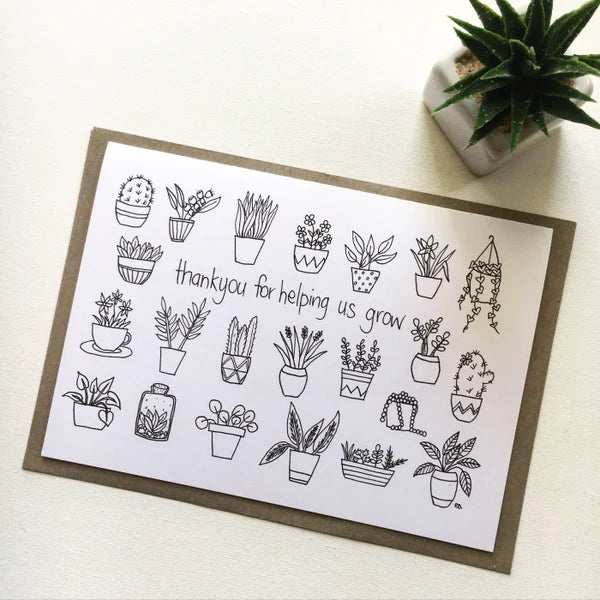 thankyou for helping us grow